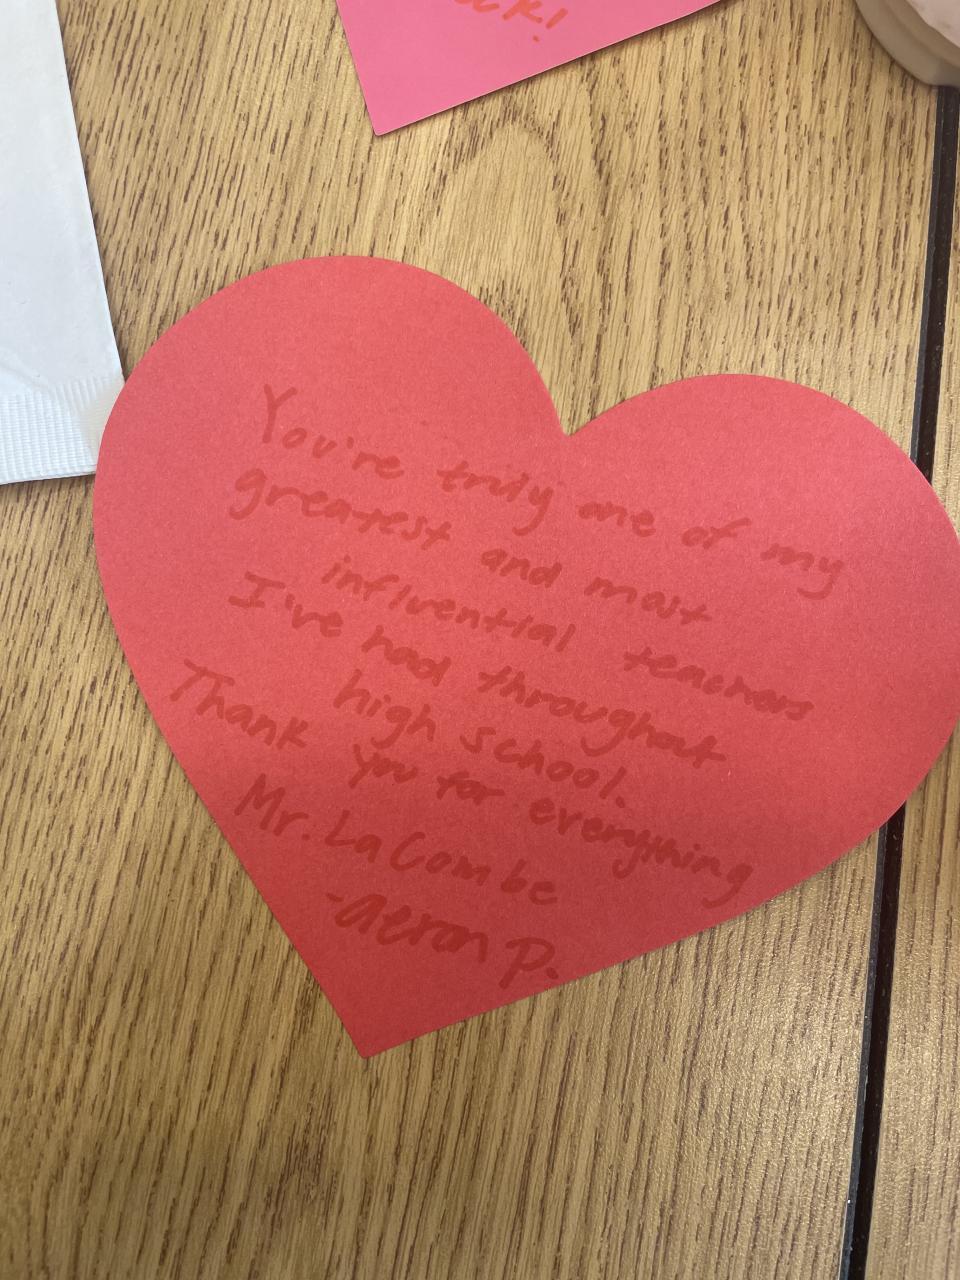 You're truly one of my
greatest and most
influential teachers
I've had throughout
high school.
Thank you for everything
Mr. LaCombe
-aeron P.